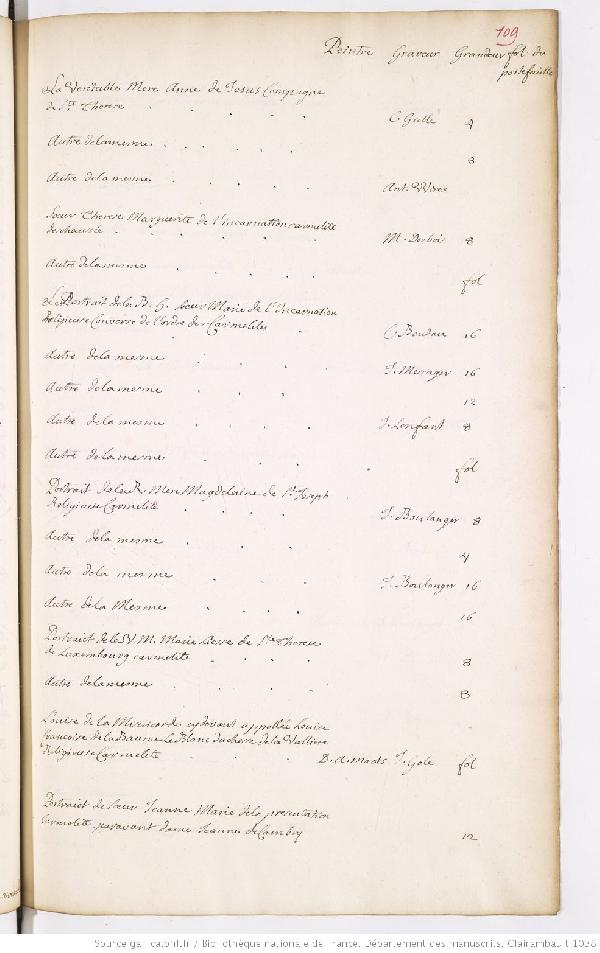 109
Peintre Graveur Grandeur fol. du
portefeuille
La Venerable Mere Anne de Jesus Compagne
de Ste Therese . . . . C. Galle 4
Autre de la mesme . . . . 8
Autre de la mesme . . . . Ant. Wierx
Sœur Therese Marguerite de l'incarnation carmelite
deschaussée . . . . M. 8
Autre de la mesme . . . . fol
Le Portrait de la B. H. sœur Marie de l'Incarnation
Religieuse Converse de l'ordre des Carmelites . C. 16
Autre de la mesme . . . J. Messager 16
Autre de la mesme . . . 12
Autre de la mesme . . . J. Lenfant 8
Autre de la mesme . . . fol
Portrait de la R. Mere Magdelaine de St. Joseph
Religieuse Carmelite . . . J. Boulanger 8
Autre de la mesme . . . 4
Autre de la mesme . . . J. Boulanger 16
Autre de la Mesme . . . 16
Portraict de la V. M. Marie de Ste Therese
de Luxembourg carmelite . . . 8
Autre de la mesme . . . . 8
Louise de la Misericorde cy devant appellée Louise
francoise de la Baume le Blanc duchesse de la Valliere
Religieuse Carmelite . . . D. d. J. Gole fol
Portraict de sœur Jeanne Marie de la presentation
Carmelite paravant dame Jeanne de Cambry 12
Source gallica.bnf.fr / Bibliothèque nationale de France. Département des manuscrits. Clairambault 1038